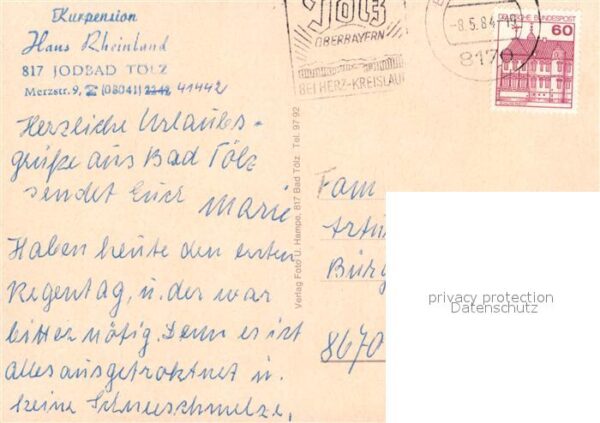 Kurpension
Haus Rheinland
817 JODBAD TÖLZ
Merzstr. 9, ☎ (08041) 2242 41442
Herzliche Urlaubs-
grüße aus Bad Tölz
sendet Euch
Marie
Haben heute den ersten
Regentag, u. der war
bitter nötig. Denn es ist
alles ausgetroktnet u.
keine Schneeschmelze.
TÖLZ
OBERBAYERN
BEI HERZ-KREISLAUF
-8.5.84-19
8170
DEUTSCHE BUNDESPOST
60
Verlag Foto U. Hampe, 817 Bad Tölz Tel. 97 92
Fam
Artu
Bürg
8670
privacy protection
Datenschutz